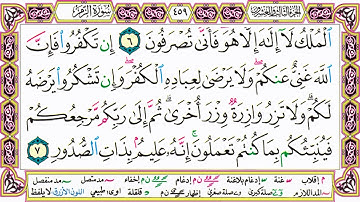 سُورَةُ الزُّمَرِ ٤٥٩ الجزء الثالث والعشرون
الْمُلْكُ لَآ إِلَٰهَ إِلَّا هُوَ فَأَنَّىٰ تُصْرَفُونَ ٦ إِن تَكْفُرُوا۟ فَإِنَّ
اللَّهَ غَنِىٌّ عَنكُمْ وَلَا يَرْضَىٰ لِعِبَادِهِ الْكُفْرَ وَإِن تَشْكُرُوا۟ يَرْضَهُ
لَكُمْ وَلَا تَزِرُ وَازِرَةٌ وِزْرَ أُخْرَىٰ ثُمَّ إِلَىٰ رَبِّكُم مَّرْجِعُكُمْ
فَيُنَبِّئُكُم بِمَا كُنتُمْ تَعْمَلُونَ إِنَّهُۥ عَلِيمٌۢ بِذَاتِ الصُّدُورِ ٧